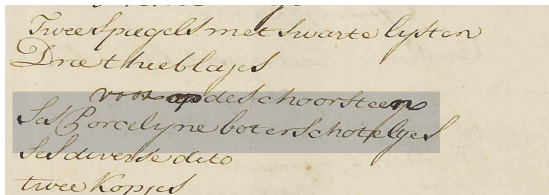 Twee spiegels met swarte lysten
Drie theeblajes
voor op de schoorsteen
Ses Porcelyne boterschoteltjes
Ses diverse dito
twee Kopjes